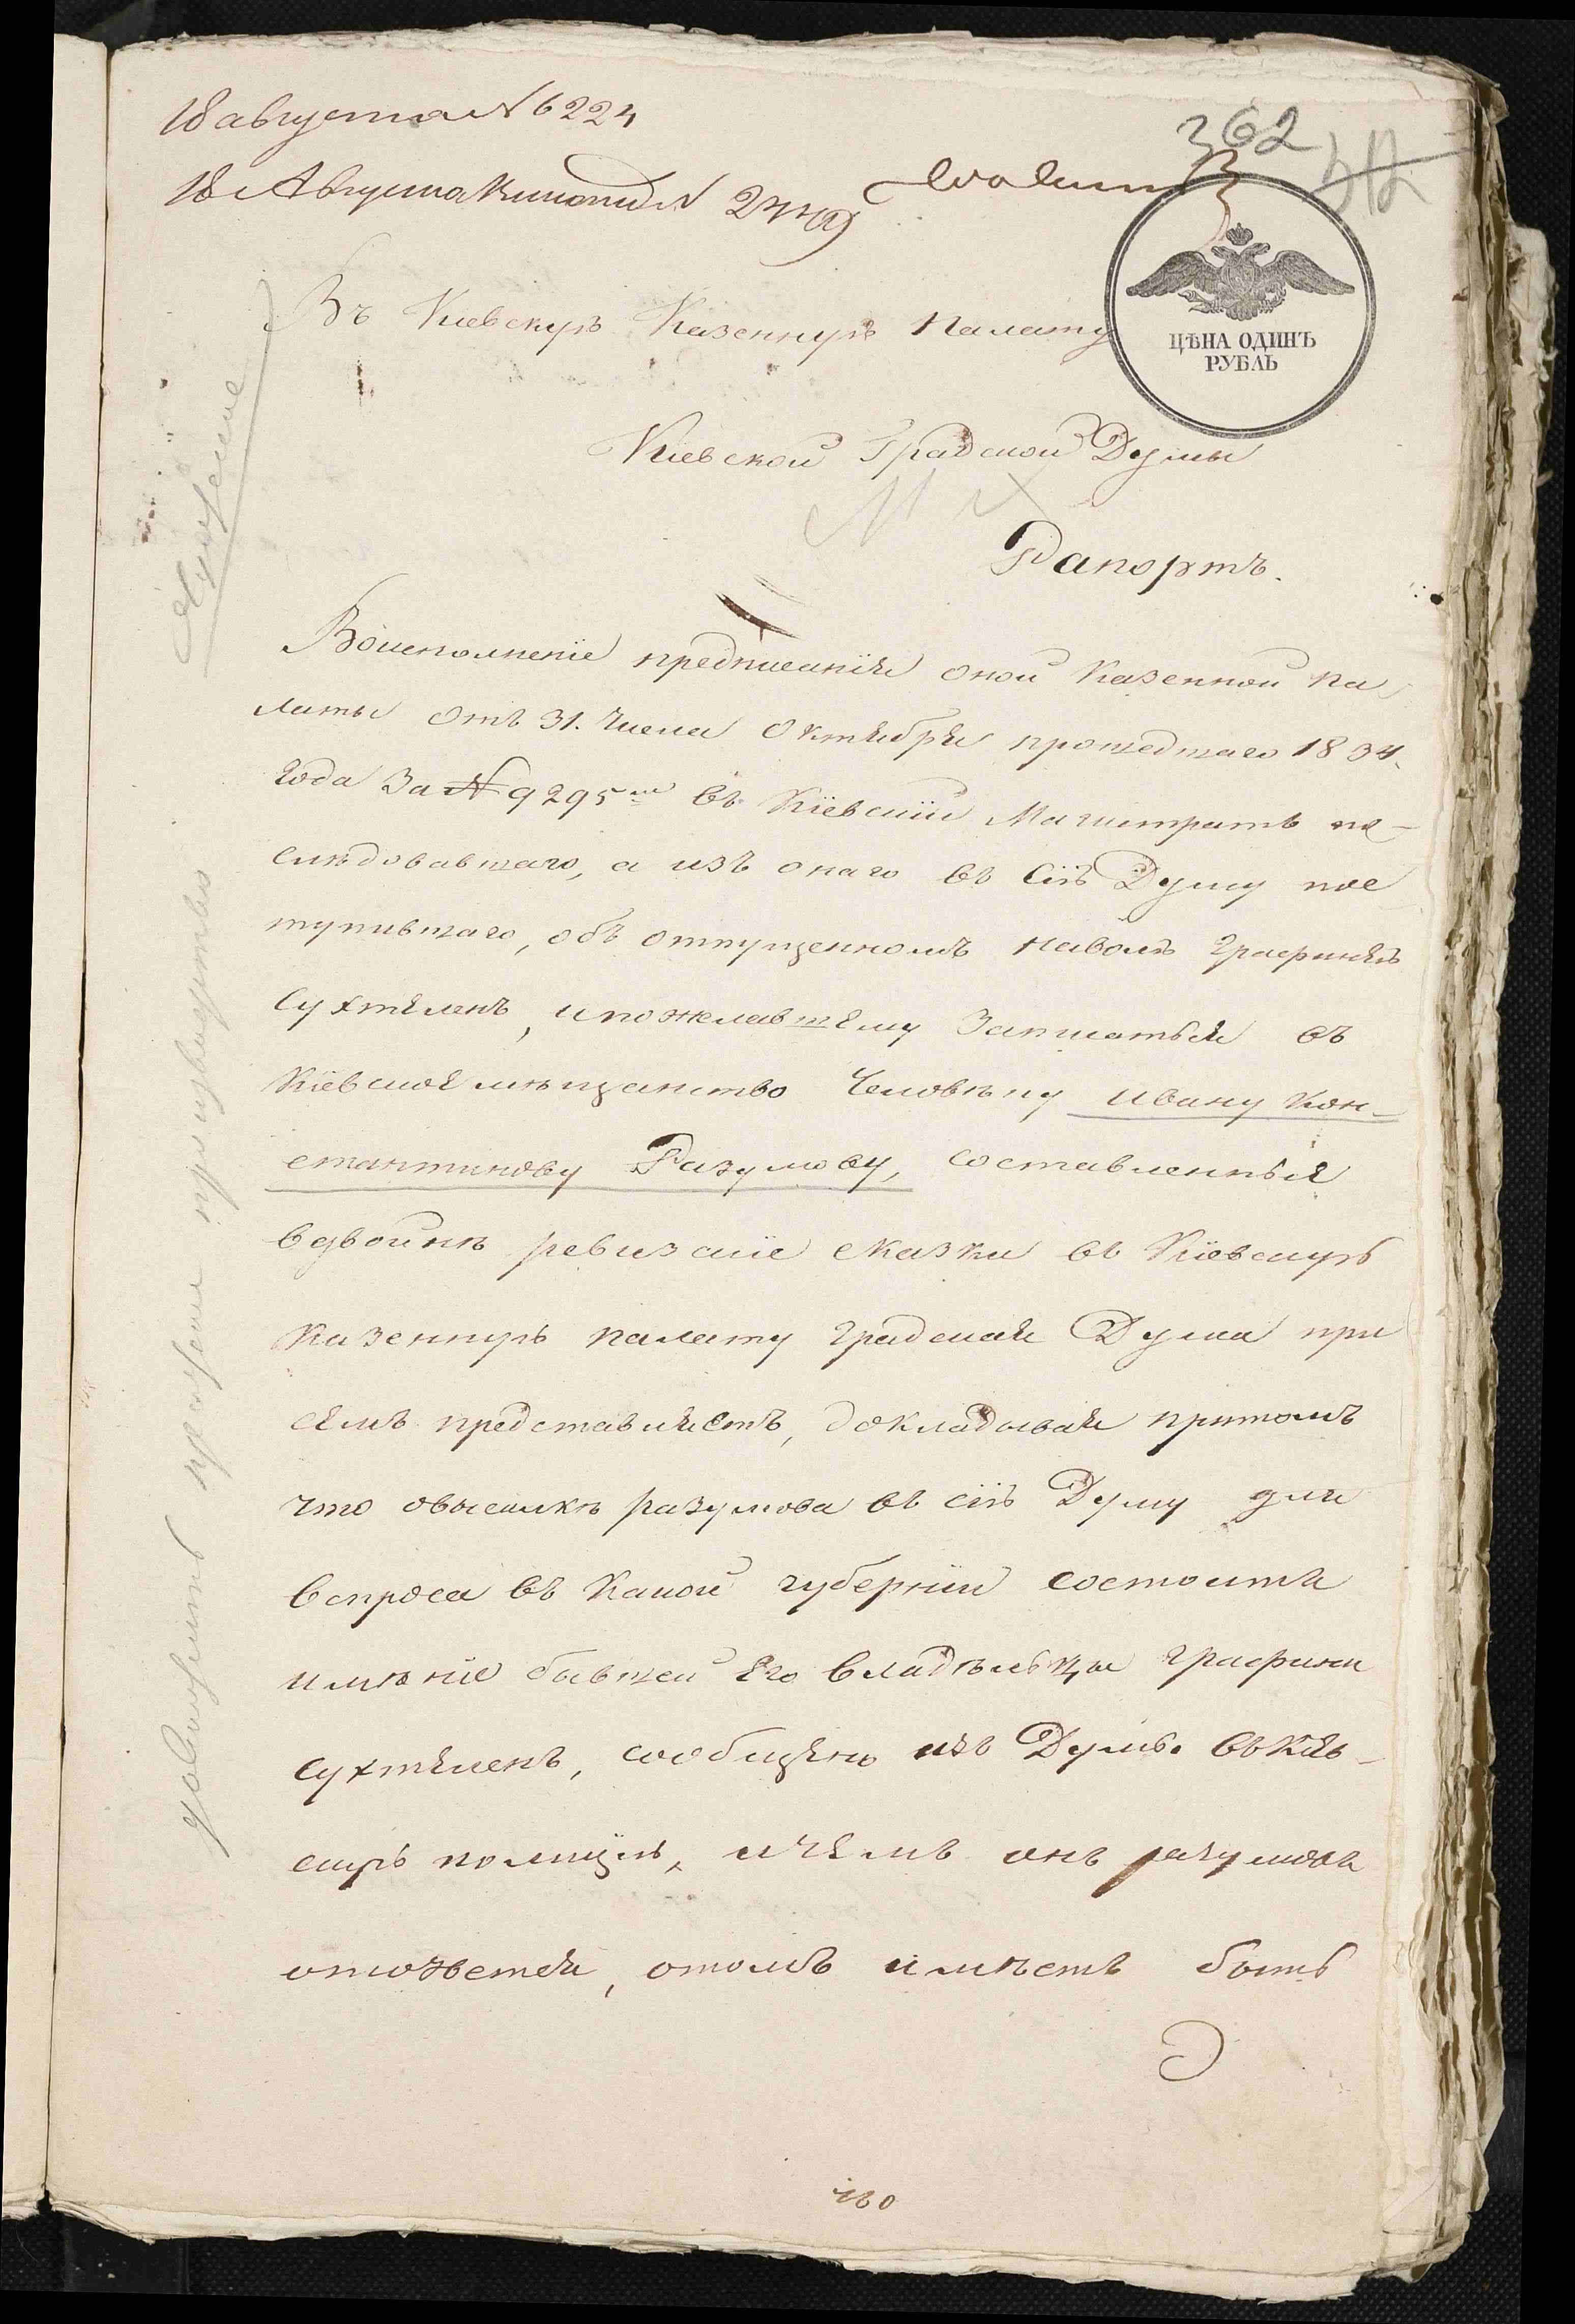 18 августа N 6224
18 Августа
362
ЦѢНА ОДИНЪ
РУБЛЬ
Въ Киевскую Казенную Палату
Киевской Градской Думы
Рапортъ.
Воисполнение предписанїя оной Казенной па
латы отъ 31. числа Октября прошедшаго 1834.
года За № 9295м въ Кїевскїй Магистратъ по-
слѣдовавшаго, а изъ онаго въ сїю Думу пос
тупившаго, объ отпущенномъ наволю графинѣю
Сухтеленъ, и пожелавшему записаться въ
Кїевское мѣщанство человѣку Ивану Кон-
стантинову Разумову, составленныя
вдвойнѣ ревизскїе сказки въ Кїевскую
Казенную палату градская Дума при
семъ представляетъ, докладывая притомъ
что овысылкѣ разумова въ сїю Думу для
вспроса въ какой губернїи состоитъ
имѣнїе бывшей его владѣльцы графини
Сухтеленъ, сообщено изъ Думы въ Кїев-
скую полицїю, и чемъ онъ разумовъ
отозвется, отомъ имѣетъ быть